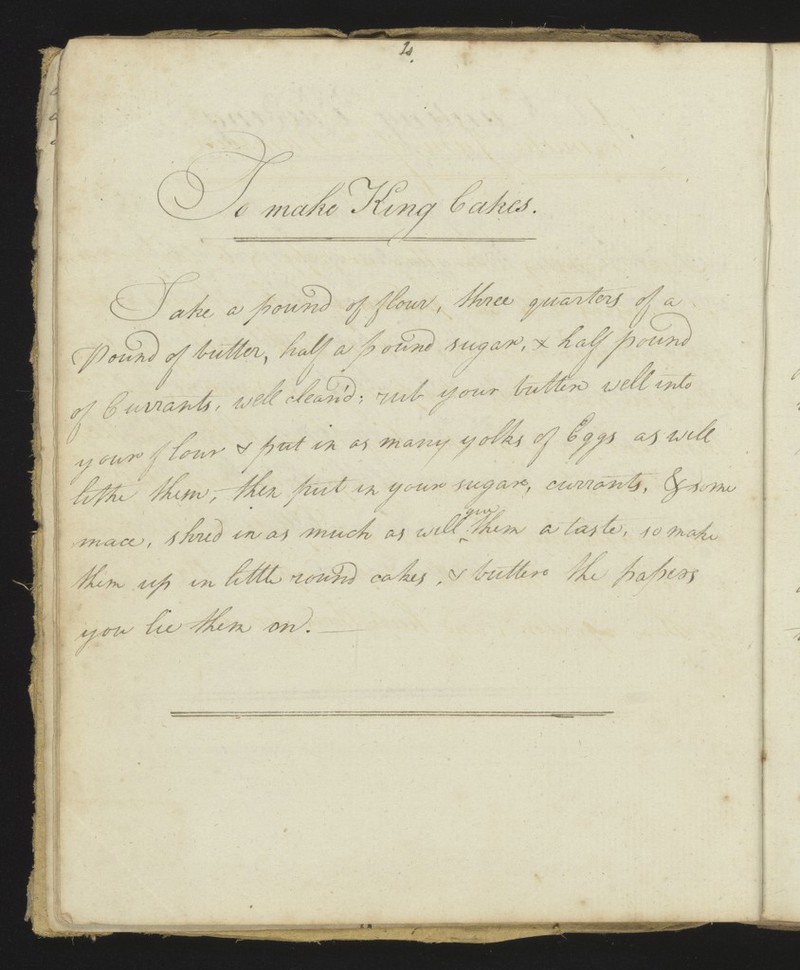 To make King Cakes.
Take a pound of flour, three quarters of a
Pound of butter, half a pound sugar, & half pound
of Currants, well clean'd; rub your butter well into
your flour & put in as many yolks of Eggs as will
lithe them, then put in your sugar, currants, & some
mace, shred in as much as will give them a taste, so make
them up in little round cakes, & butter the papers
you lie them on.